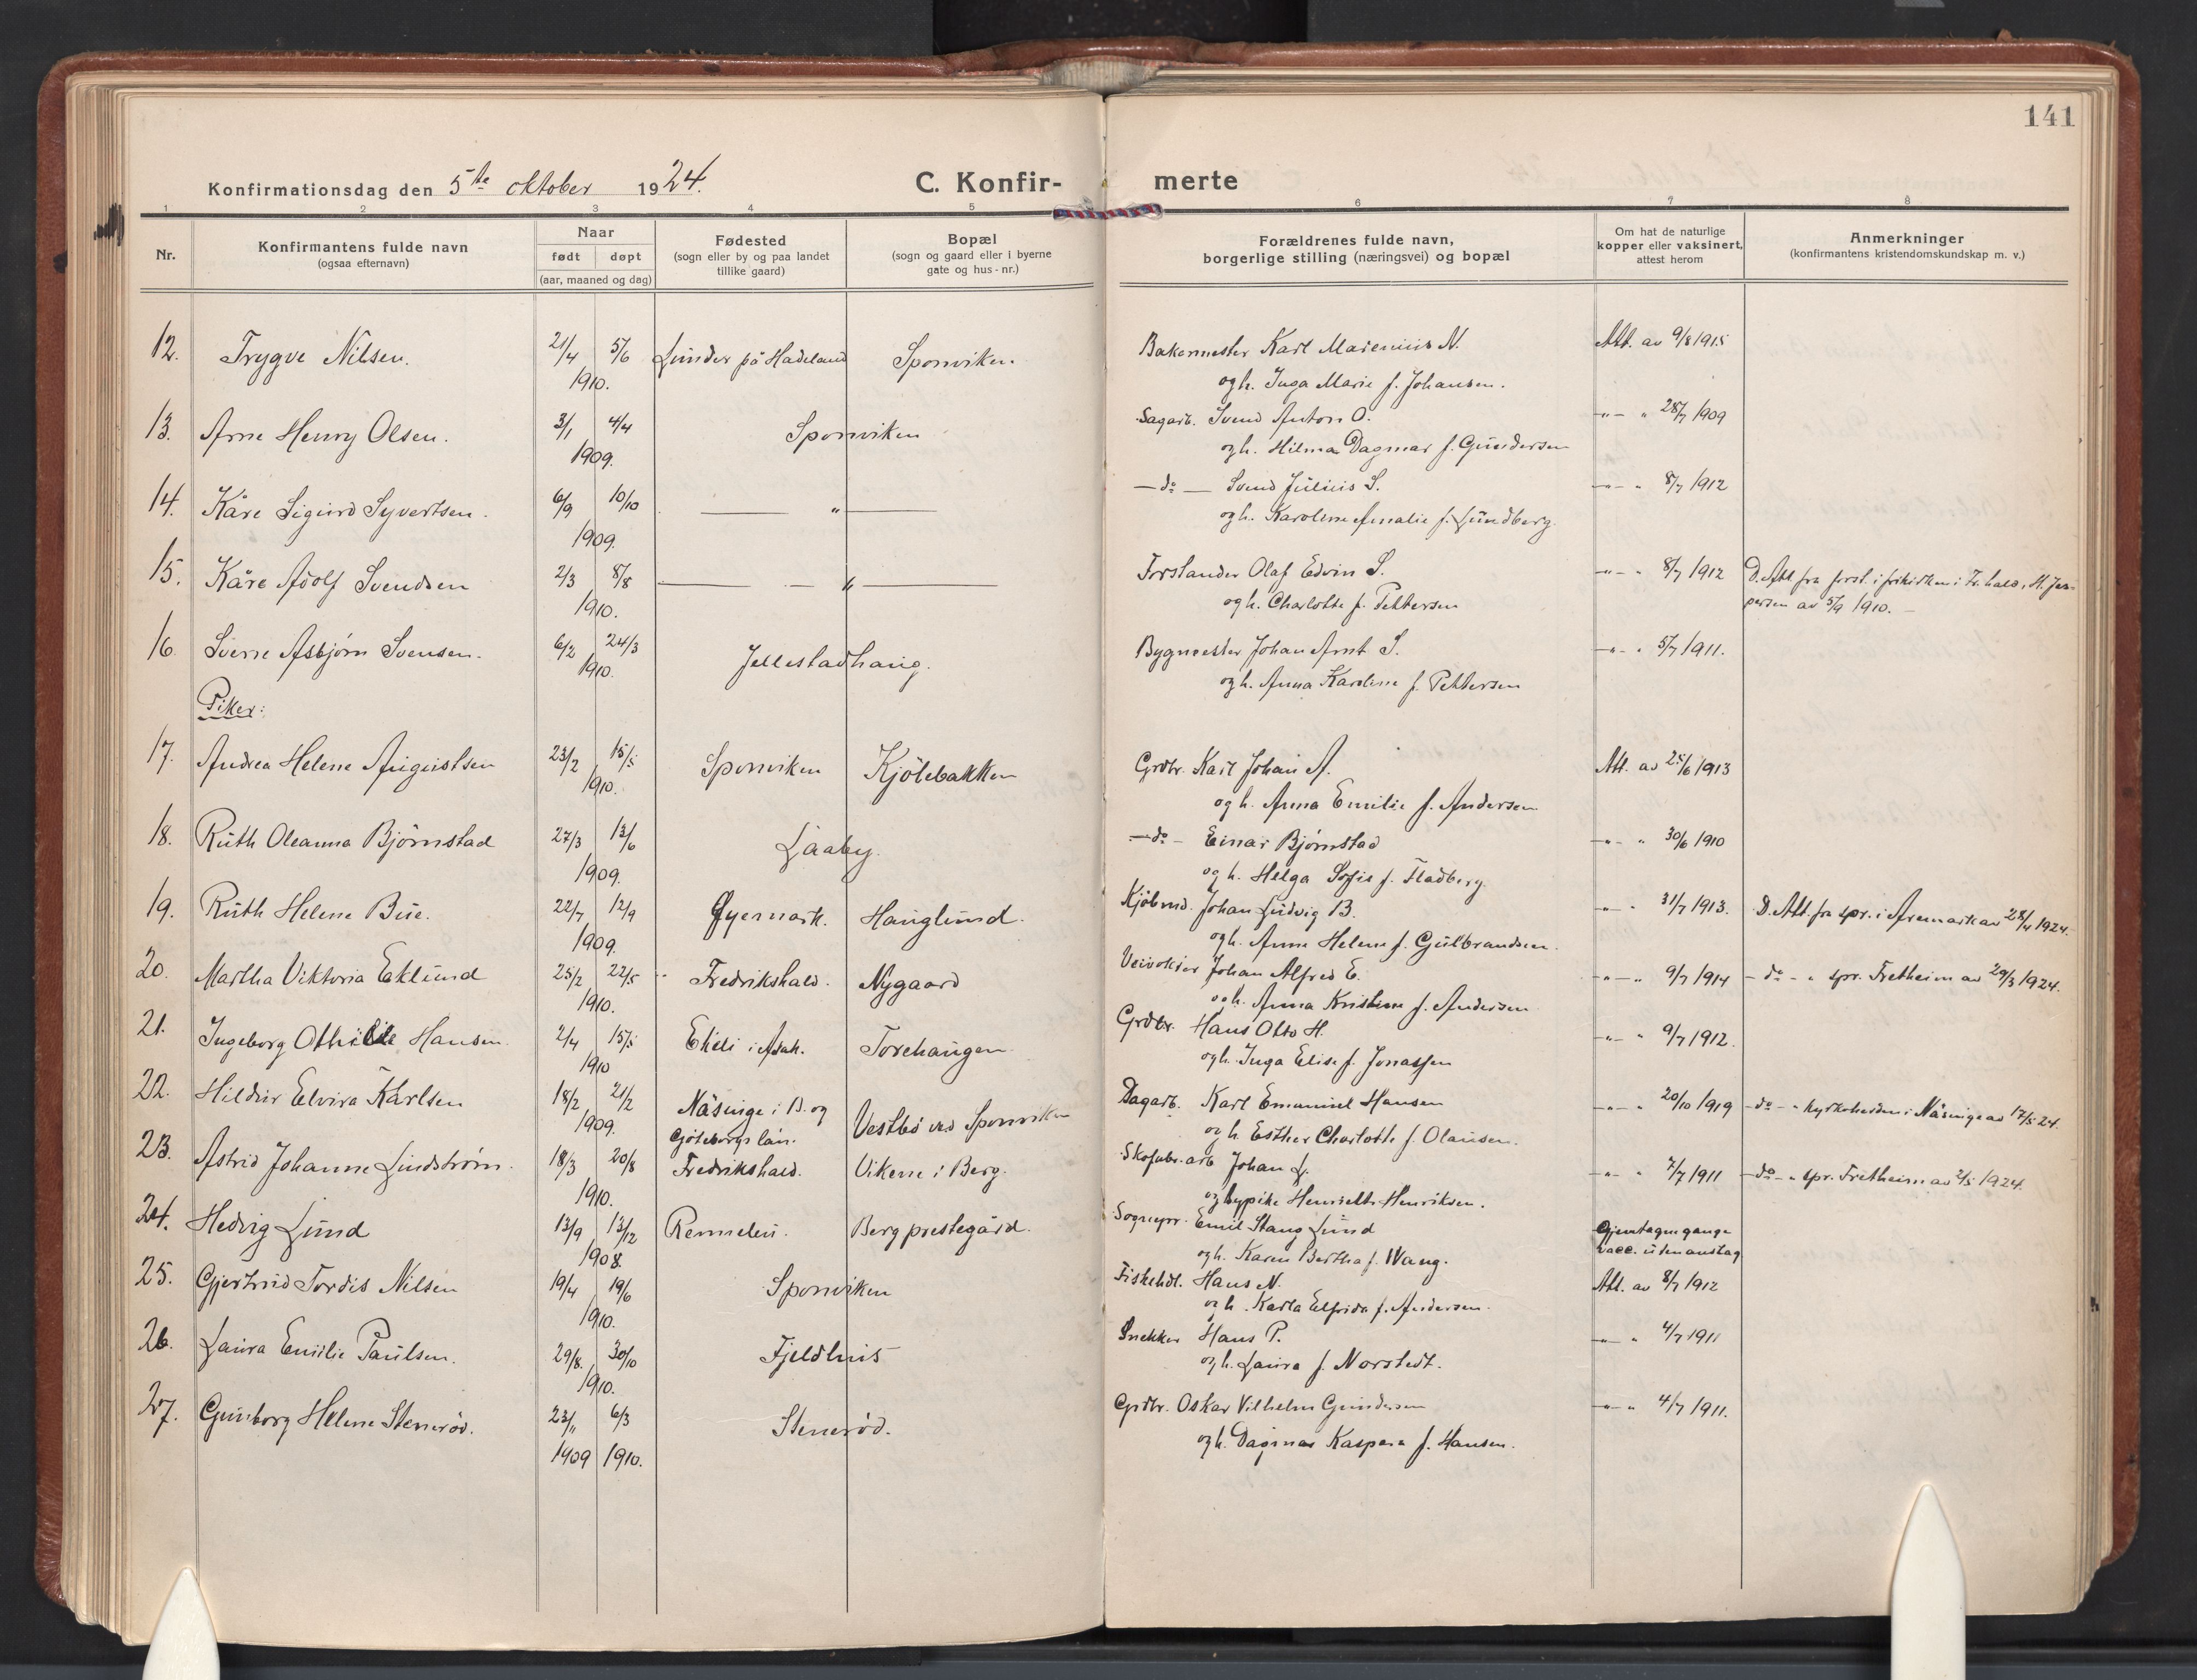 141
Konfirmationsdag den 5te oktober 1924.
C. Konfir-merte
1 2 3 4 5 6 7 8
Nr.
Konfirmantens fulde navn
(ogsaa efternavn)
Naar
født døpt
(aar, maaned og dag)
Fødested
(sogn eller by og paa landet
tillike gaard)
Bopæl
(sogn og gaard eller i byerne
gate og hus-nr.)
Forældrenes fulde navn,
borgerlige stilling (næringsvei) og bopæl
Om hat de naturlige
kopper eller vaksinert,
attest herom
Anmerkninger
(konfirmantens kristendomskundskap m. v.)
12. Trygve Nilsen. 21/4 5/6 Lunder på Hadeland Sponviken. Bakermester Karl Marenius N. Att. av 9/8 1915
1910. og h. Inga Marie f. Johansen.
13. Arne Henry Olsen. 3/1 4/4 Sponviken Sagarb. Svend Anton O. —"— " 28/7 1909
1909. og h. Hilma Dagmar f. Gundersen
14. Kåre Sigurd Syvertsen. 6/9 10/10 — " — —do— Svend Julius S. —"— " 8/7 1912
1909. og h. Karoline Amalie f. Lundberg.
15. Kåre Adolf Svendsen 2/3 8/8 — " — Forstander Olaf Edvin S. —"— " 8/7 1912 D. Att. fra forst. i frikirken i Fr.hald, H. Jes-
1910. og h. Charlotte f. Pettersen persen av 5/9 1910. —
16. Sverre Asbjörn Svensen. 6/2 24/3 Jellestadhaug. Bygmester Johan Arnt S. —"— " 5/7 1911.
1910. og h. Anna Karoline f. Pettersen
Piker:
17. Andrea Helene Augustsen 23/2 15/5 Sponviken Kjölebakken Grdbr. Karl Johan A. Att. av 25/6 1913
1910. og h. Anna Emilie f. Andersen
18. Ruth Oleanna Björnstad 27/3 13/6 Laaby. —do— Einar Björnstad —"— " 30/6 1910
1909. og h. Helga Sofie f. Fladberg.
19. Ruth Helene Bue. 22/7 12/9 Öyemark. Hauglund. Kjöbmd. Johan Ludvig B. —"— " 31/7 1913. D. Att. fra spr. i Aremark av 28/4 1924.
1909. og h. Anne Helene f. Gulbrandsen.
20. Martha Viktoria Eklund 25/2 22/5 Fredrikshald. Nygaard Veivokter Johan Alfred E. —"— " 9/7 1914 —do— " spr. Fretheim av 29/3 1924.
1910. og h. Anna Kristine f. Andersen
21. Ingeborg Othilie Hansen. 2/4 15/5 Ekeli i Asak. Torehaugen Grdbr. Hans Otto H. —"— " 9/7 1912.
1910 og h. Inga Elise f. Jonassen
22. Hildur Elvira Karlsen 18/2 21/2 Näsinge i B. og Vestbö ved Sponviken Dagarb. Karl Emanuel Hansen —"— " 20/10 1919 —do— " kyrkoherden i Näsinge av 17/5 24.
1909. Göteborgs län. og h. Esther Charlotte f. Olausen.
23. Astrid Johanne Lindström. 18/3 20/8 Fredrikshald. Vikene i Berg. Skofabr.arb Johan L. —"— " 7/7 1911 —do— " spr. Fretheim av 2/5 1924
1910. og bypike Henriette Henriksen.
24. Hedvig Lund 13/9 13/12 Rennebu. Berg prestegård. Sognepr. Emil Stang Lund Gjentagne gange
1908. og h. Karen Bertha f. Wang. vacc. uten anslag
25. Gjertrud Tordis Nilsen 19/4 19/6 Sponviken Fiskehdl. Hans N. Att. av 8/7 1912
1910. og h. Karla Elfrida f. Andersen.
26. Laura Emilie Paulsen. 29/8. 30/10 Fjeldhus Snekker Hans P. —"— " 4/7 1911
1910. og h. Laura f. Norstedt.
27. Gunborg Helene Steneröd. 23/11 6/3 Steneröd. Grdbr. Oskar Vilhelm Gundersen —"— " 4/7 1911.
1909 1910. og h. Dagmar Kaspara f. Hansen.